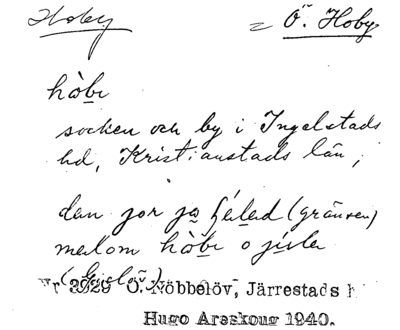 Hoby = Ö. Hoby
hòbı
socken och by i Ingelstads
hd, Kristianstads län,
dan jor ja (gränsen)
mælom hòbı o
Nr 3929 Ö. Nöbbelöv, Järrestads h
Hugo Areskoug 1940.